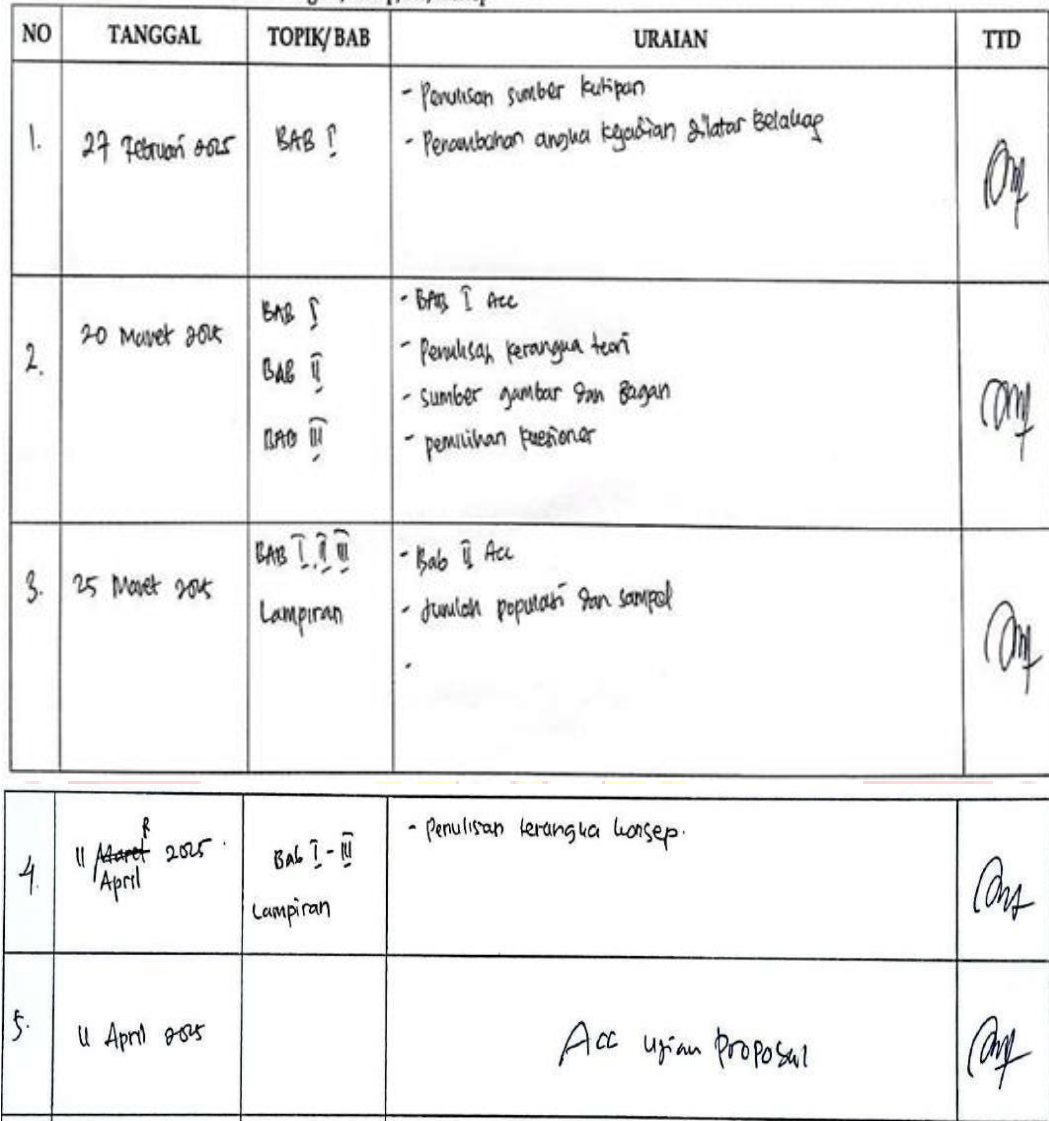 NO TANGGAL TOPIK/BAB URAIAN TTD
1. 27 Februari 2025 BAB I
- Penulisan sumber kutipan
- Penambahan angka kejadian dilatar Belakag
2. 20 Maret 2025
BAB I
BAB II
BAB III
- BAB I Acc
- Penulisan kerangka teori
- sumber gambar dan Bagan
- pemilihan kuesioner
3. 25 Maret 2025
BAB I, II, III
Lampiran
- Bab II Acc
- Jumlah populasi dan sampel
-
4. 11 Maret 2025
April
Bab I - III
Lampiran
- Penulisan kerangka konsep.
5. 11 April 2025 Acc ujian proposal